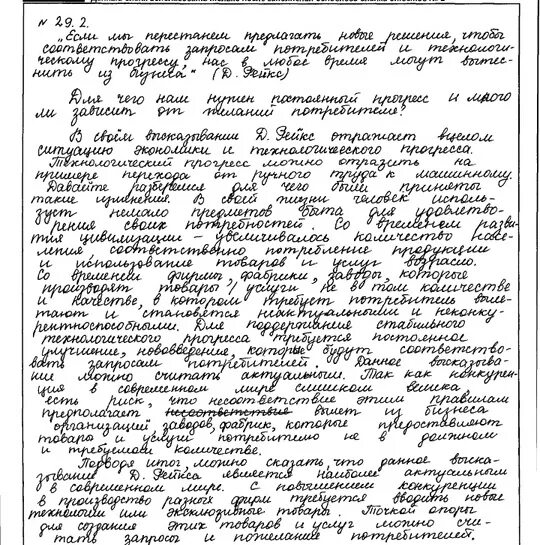 № 29.2.
„Если мы перестанем предлагать новые решения, чтобы
соответствовать запросам потребителей и технологи-
ческому прогрессу, нас в любое время могут вытес-
нить из бизнеса" (Д. Фейкс)
Для чего нам нужен постоянный прогресс и много
ли зависит от желаний потребителя?
В своём высказывании Д. Фейкс отражает в целом
ситуацию экономики и технологического прогресса.
Технологический прогресс можно отразить на
примере перехода от ручного труда к машинному.
Давайте разберёмся для чего были приняты
такие изменения. В своей жизни человек исполь-
зует немало предметов быта для удовлетво-
рения своих потребностей. Со временем разви-
тия цивилизации – увеличивалось количество насе-
ления соответственно потребление продукции
и использование товаров и услуг возрасло.
Со временем фирмы, фабрики, заводы, которые
производят товары/услуги не в том количестве
и качестве, в котором требует потребитель выле-
тают и становятся неактуальными и неконку-
рентноспособными. Для поддержание стабильного
технологического прогресса требуется постоянное
улучшение, нововведения, которые будут соответство-
вать запросам потребителей. Данное высказыва-
ние можно считать актуальным. Так как конкурен-
ция в современном мире слишком велика
есть риск, что несоответствие этим правилам
предполагает несоответствие вылет из бизнеса
организаций заводов, фабрик, которые предоставляют
товары и услуги потребителю не в должном
и требуемом количестве.
Подводя итог, можно сказать, что данное выска-
зывание Д. Фейкса является наиболее актуальным
в современном мире. С повышением конкуренции
в производство разных фирм требуется вводить новые
технологии или эксклюзивные товары. Точкой опоры
для создания этих товаров и услуг можно счи-
тать запросы и пожелание потребителей.